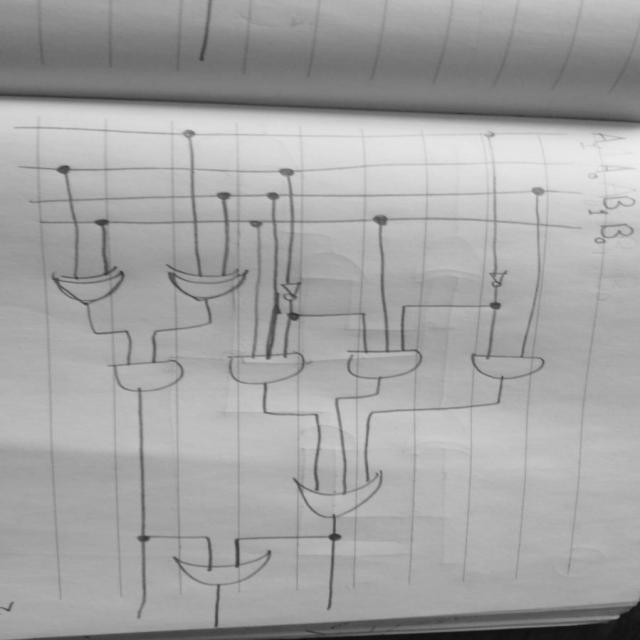 A₁
A₀
B₁
B₀